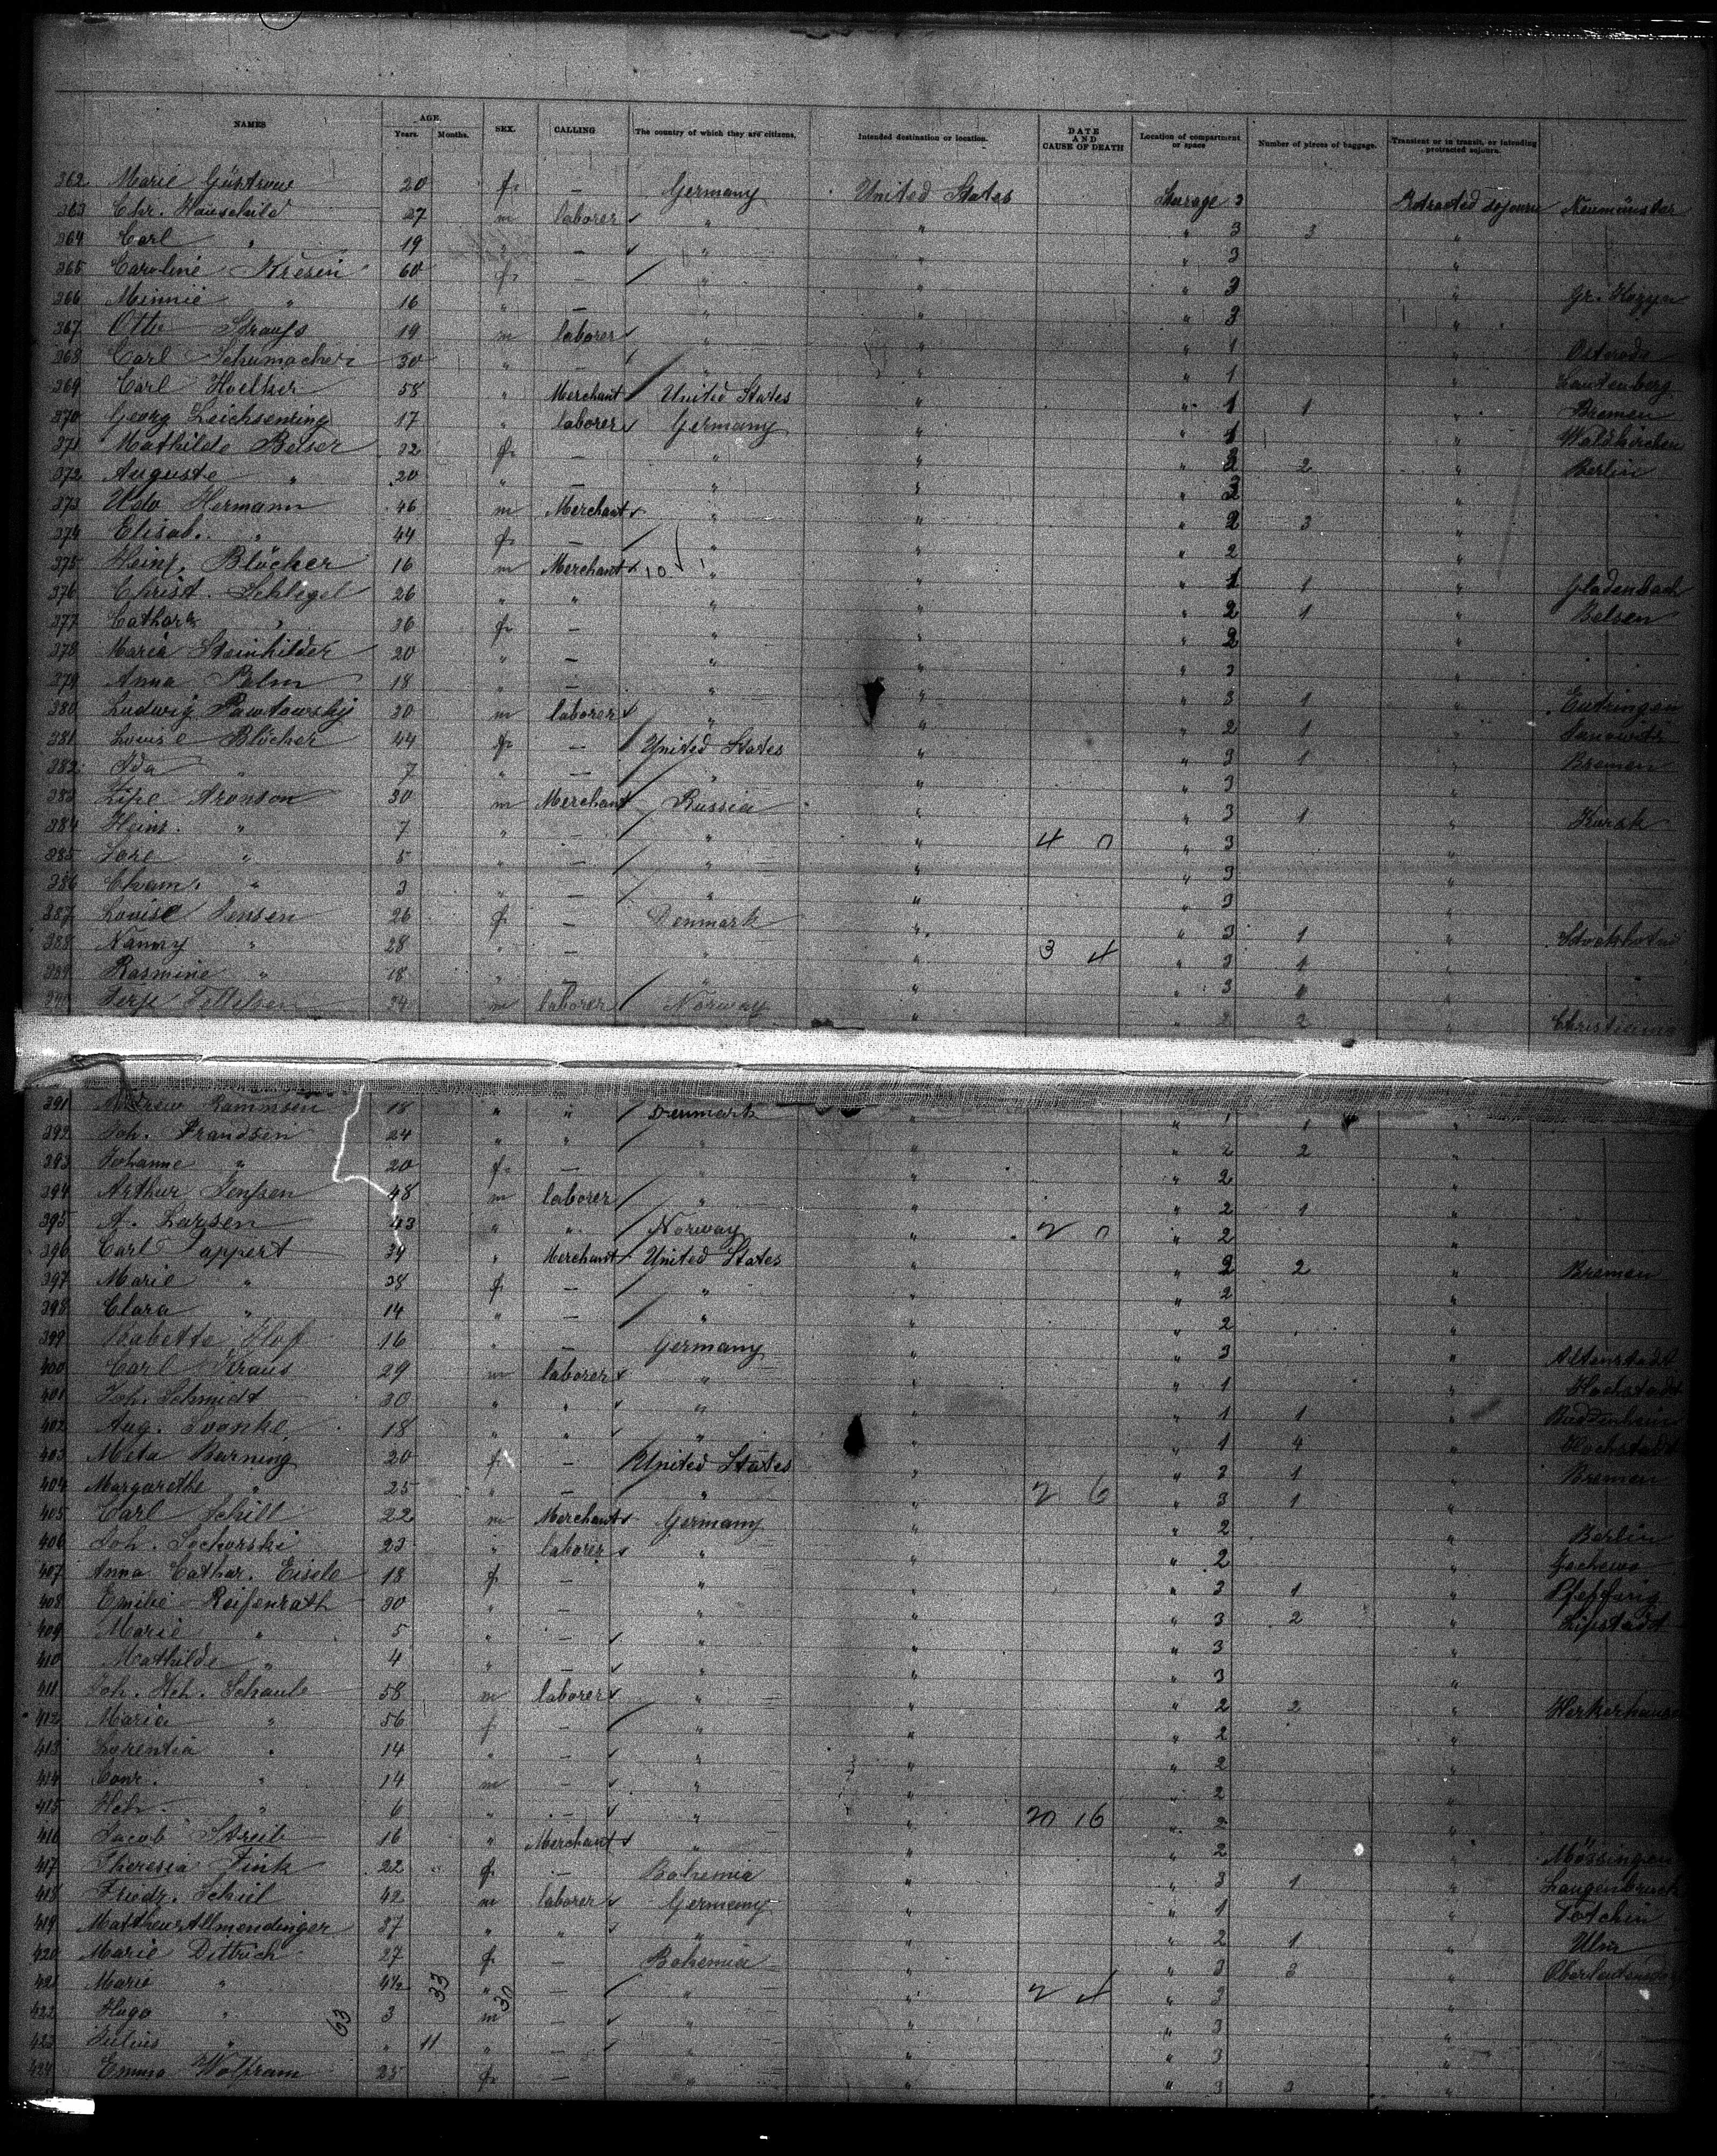 NAMES AGE. Years. Months. SEX. CALLING The country of which they are citizens. Intended destination or location. DATE AND CAUSE OF DEATH Location of compartment or space Number of pieces of baggage. Transient or in transit, or intending protracted sojourn.
362 Marie Güstrow 20 f. — Germany United States Steerage 3 Protracted sojourn Neumünster
363 Chr. Hauschild 27 m laborer " " " 3 3 "
364 Carl " 19 " — " " " 3 "
365 Caroline Kresin 60 f. — " " " 3 "
366 Minnie " 16 " — " " " 3 "
367 Otto Strauss 19 m laborer " " " 1 " Osterode
368 Carl Schumacher 30 " " " " " 1 " Lautenberg
369 Carl Hoelker 58 " Merchant United States " " 1 1 " Bremen
370 Georg Leichsenring 17 " laborer Germany " " 1 " Waldkirchen
371 Mathilde Belser 22 f. — " " " 3 2 " Berlin
372 Auguste " 20 " — " " " 3 "
373 Udo Hermann 46 m Merchant " " " 2 3 "
374 Elisab. " 44 f. — " " " 2 "
375 Heinr. Blöcher 16 m Merchant 10 " " " 1 1 " Gladenbach
376 Christ. Schlegel 26 " " " " " 2 1 " Belsen
377 Cathar. " 36 f. — " " " 2 "
378 Maria Steinhilder 20 " — " " " 3 "
379 Anna Palm 18 " — " " " 3 1 " Entringen
380 Ludwig Pawlowsky 30 m laborer " " " 2 1 "
381 Louise Blöcher 44 f. — United States " " 3 1 " Bremen
382 Ida " 7 " — " " " 3 "
383 Zipe Aronson 30 m Merchant Russia " " 3 1 "
384 Heins. " 7 " — " " 4 0 " 3 "
385 Sore " 5 " — " " " 3 "
386 Cham. " 3 " — " " " 3 "
387 Louise Jensen 26 f. — Denmark " " 3 1 "
388 Nanny " 28 " — " " 3 4 " 3 1 "
389 Rasmine " 18 " — " " " 3 "
390 Terje Tellefsen 24 m laborer Norway " 2 2 " Christiania
391 Andrew Rammsen 18 " " Denmark " " 1 1 "
392 Joh. Frandsen 24 " " " " " 2 2 "
393 Johanne " 20 f. — " " " 2 "
394 Arthur Jenssen 48 m laborer " " " 2 1 "
395 A. Larsen 43 " " Norway " 2 0 " 2 "
396 Carl Tappert 34 " Merchant United States " " 2 2 " Bremen
397 Marie " 38 f. — " " " 2 "
398 Clara " 14 " — " " " 2 "
399 Babette Hof 16 " — Germany " " 3 " Altenstadt
400 Carl Kraus 29 m laborer " " " 1 " Hochstadt
401 Joh. Schmidt 30 " " " " " 1 1 "
402 Aug. Svonke 18 " " " " " 1 4 " Hochstadt
403 Meta Burning 20 f — United States " " 3 1 " Bremen
404 Margarethe " 25 " — " " 2 6 " 3 1 "
405 Carl Schill 22 m Merchant Germany " " 2 " Berlin
406 Joh. Sochorski 23 " laborer " " " 2 "
407 Anna Cathar. Eisele 18 f. — " " " 3 1 "
408 Emilie Reifenrath 30 " — " " " 3 2 " Lipstadt
409 Marie " 5 " — " " " 3 "
410 Mathilde " 4 " — " " " 3 "
411 Joh. Hch. Schaub 58 m laborer " " " 2 2 "
412 Maria " 56 f — " " " 2 "
413 Lorentia " 14 " — " " " 2 "
414 Conr. " 14 m — " " " 2 "
415 Hch. " 6 " — " " 20 16 " 2 "
416 Jacob Streib 16 " Merchant " " " 2 " Mössingen
417 Theresia Fink 22 f. — Bohemia " " 3 1 " Langenbruck
418 Friedr. Schiel 42 m laborer Germany " " 1 "
419 Mattheus Allmendinger 37 " " " " " 2 1 " Ulm
420 Marie Dittrich 27 f. — Bohemia " " 3 3 "
421 Marie " 4½ 33 " 30 — " " 2 4 " 3 "
422 Hugo " 63 3 m — " " " 3 "
423 Julius " " 11 " — " " " 3 "
424 Emma Wolfram 25 f. — " " " 3 3 "